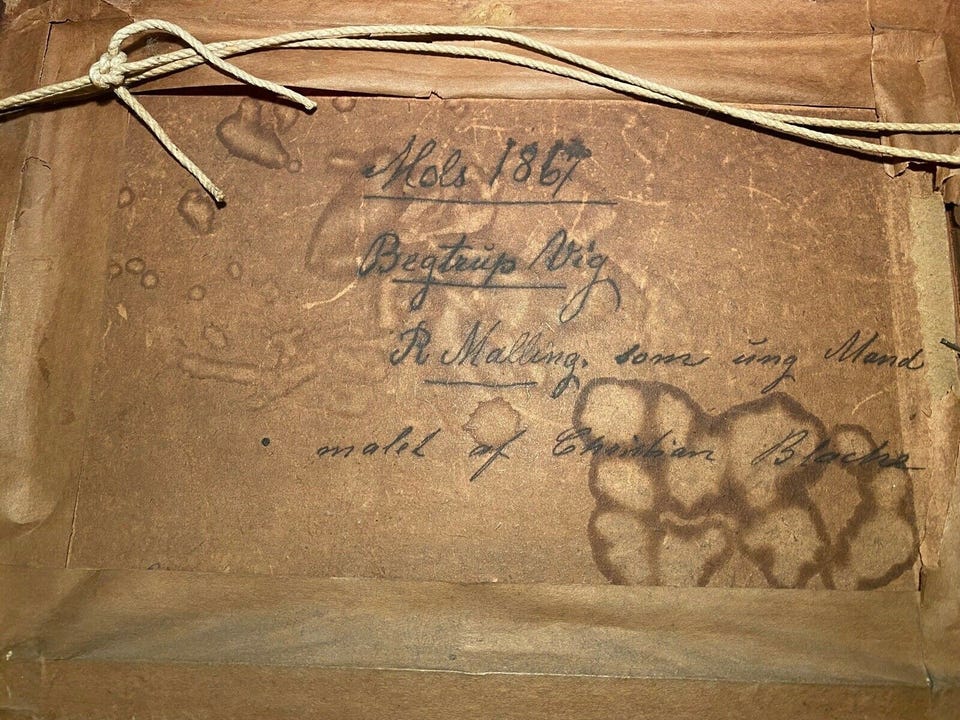 Mols 1867
Begtrup Vig
R Malling. som ung Mand
malet af Christian Blache